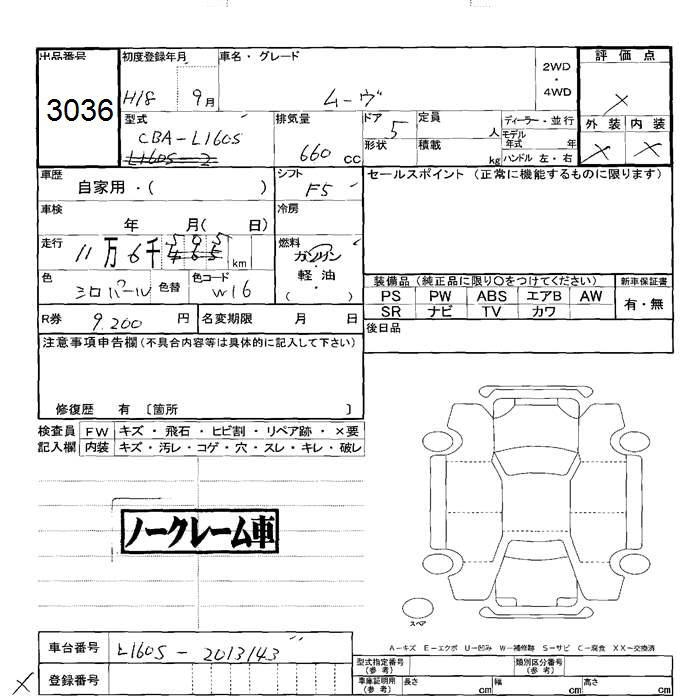 出品番号 初度登録年月 車名・グレード 2WD・4WD 評価点
3036 H18 9月 ムーヴ ×
型式 排気量 ドア 定員 ディーラー・並行 外装 内装
CBA-L160S 660cc 5 人 モデル年式 年 × ×
L160S-2 形状 積載 kg ハンドル 左・右
車歴 シフト セールスポイント (正常に機能するものに限ります)
自家用・( ) F5
車検 冷房
年 月( 日)
走行 燃料
11万6千 km ガソリン・軽油・( )
色 色替 色コード 装備品 (純正品に限り○をつけてください) 新車保証書
シロパール W16 PS PW ABS エアB AW 有・無
SR ナビ TV カワ
R券 9,200円 名変期限 月 日 後日品
注意事項申告欄 (不具合内容等は具体的に記入して下さい)
修復歴 有 〔箇所 〕
検査員 FW キズ・飛石・ヒビ割・リペア跡・×要
記入欄 内装 キズ・汚レ・コゲ・穴・スレ・キレ・破レ
ノークレーム車
スペア
A-キズ E-エクボ U-凹み W-補修跡 S-サビ C-腐食 XX-交換済
車台番号 L160S-2013143
× 登録番号
型式指定番号(参考) 類別区分番号(参考)
車庫証明用(参考) 長さ cm 幅 cm 高さ cm